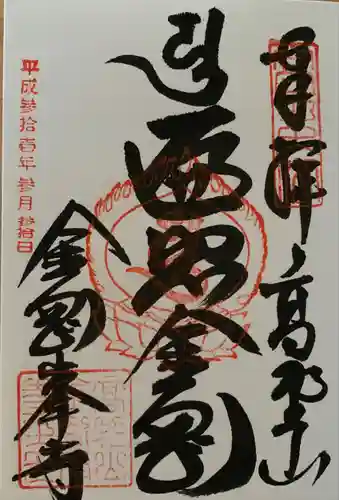 奉拝 高野山
遍照金剛
金剛峯寺
平成参拾壱年 参月 参拾日